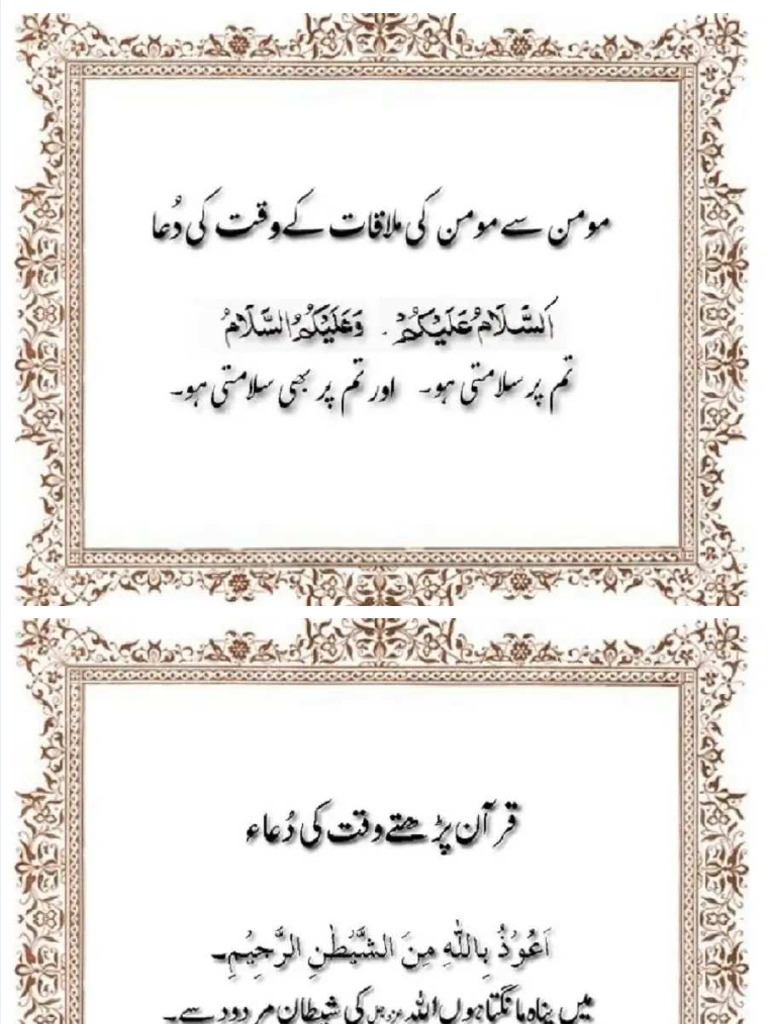 مومن سے مومن کی ملاقات کے وقت کی دُعا
اَلسَّلَامُ عَلَيْكُمْ۔ وَعَلَيْكُمُ السَّلَامُ
تم پر سلامتی ہو۔ اور تم پر بھی سلامتی ہو۔
قرآن پڑھتے وقت کی دُعاء
اَعُوْذُ بِاللّٰهِ مِنَ الشَّيْطٰنِ الرَّجِيْمِ۔
میں پناہ مانگتا ہوں اللہ عزوجل کی شیطان مردود سے۔